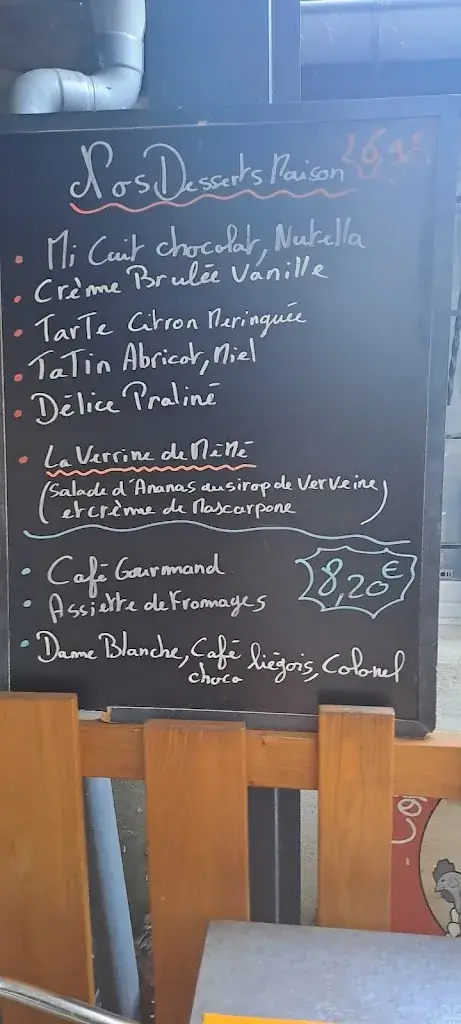 Nos Desserts Maison
• Mi Cuit chocolat, Nutella
• Crème Brulée Vanille
• Tarte Citron Meringuée
• Tatin Abricot, Miel
• Délice Praliné
• La Verrine de Mémé
(Salade d'Ananas au sirop de Verveine
et crème de Mascarpone)
• Café Gourmand
8,20€
• Assiette de Fromages
• Dame Blanche, Café liégois, Colonel
choco